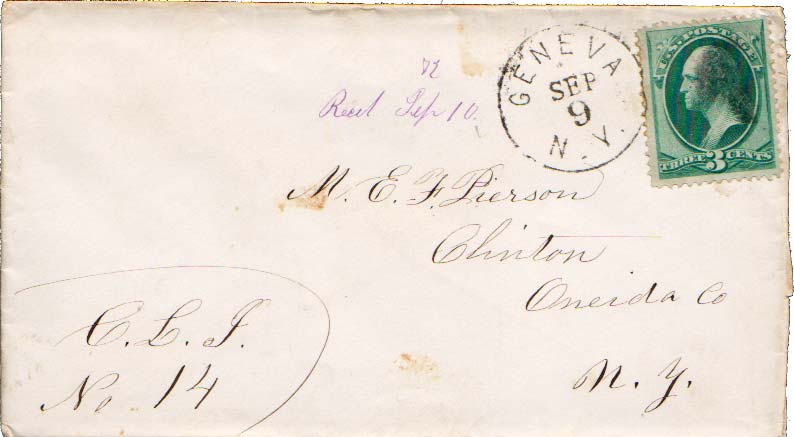 U.S. POSTAGE
THREE 3 CENTS
GENEVA
SEP
9
N.Y.
Recd Sep 10.
M. E. F. Pierson
Clinton
Oneida Co
N. Y.
C. L. I.
No. 14